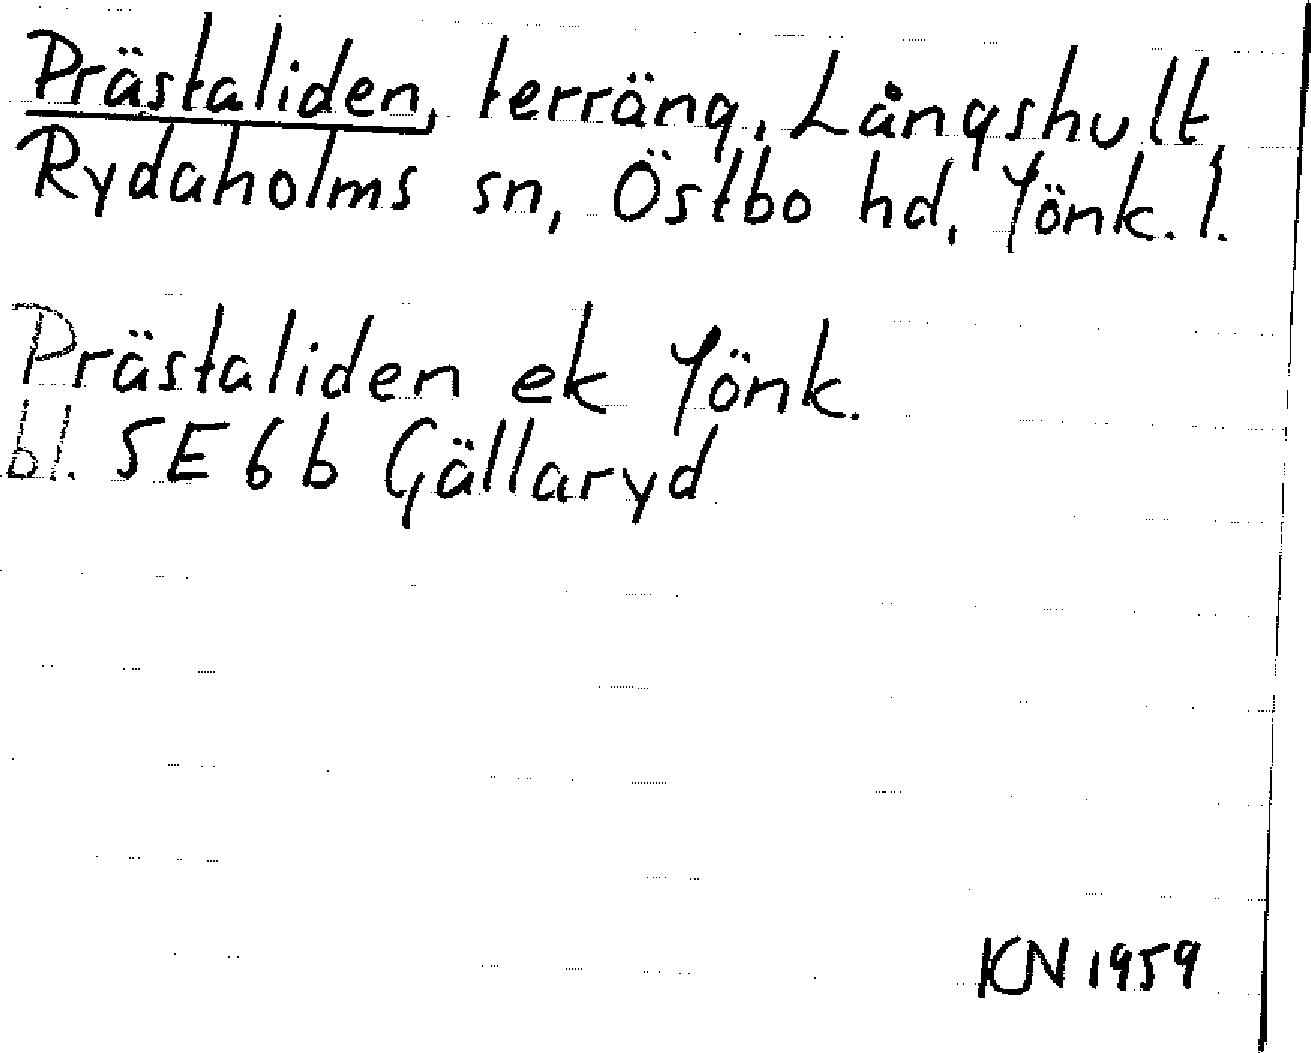 Prästaliden, terräng, Långshult,
Rydaholms sn, Östbo hd, Jönk. l.
Prästaliden ek Jönk.
bl. 5E6b Gällaryd
KN 1959